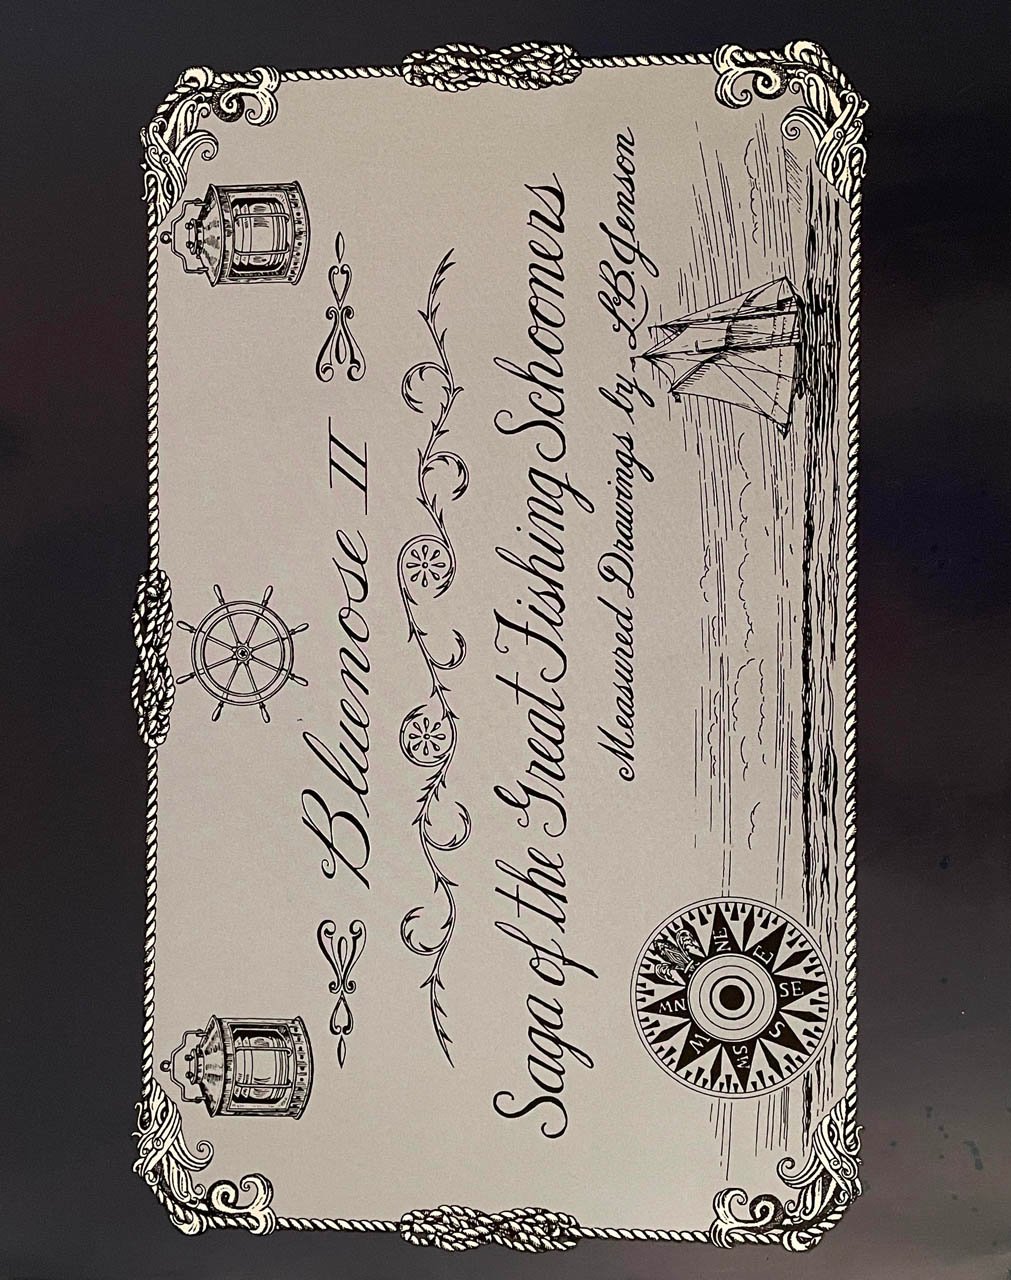 Bluenose II
Saga of the Great Fishing Schooners
Measured Drawings by L.B. Jenson
NE
E
SE
S
SW
W
NW